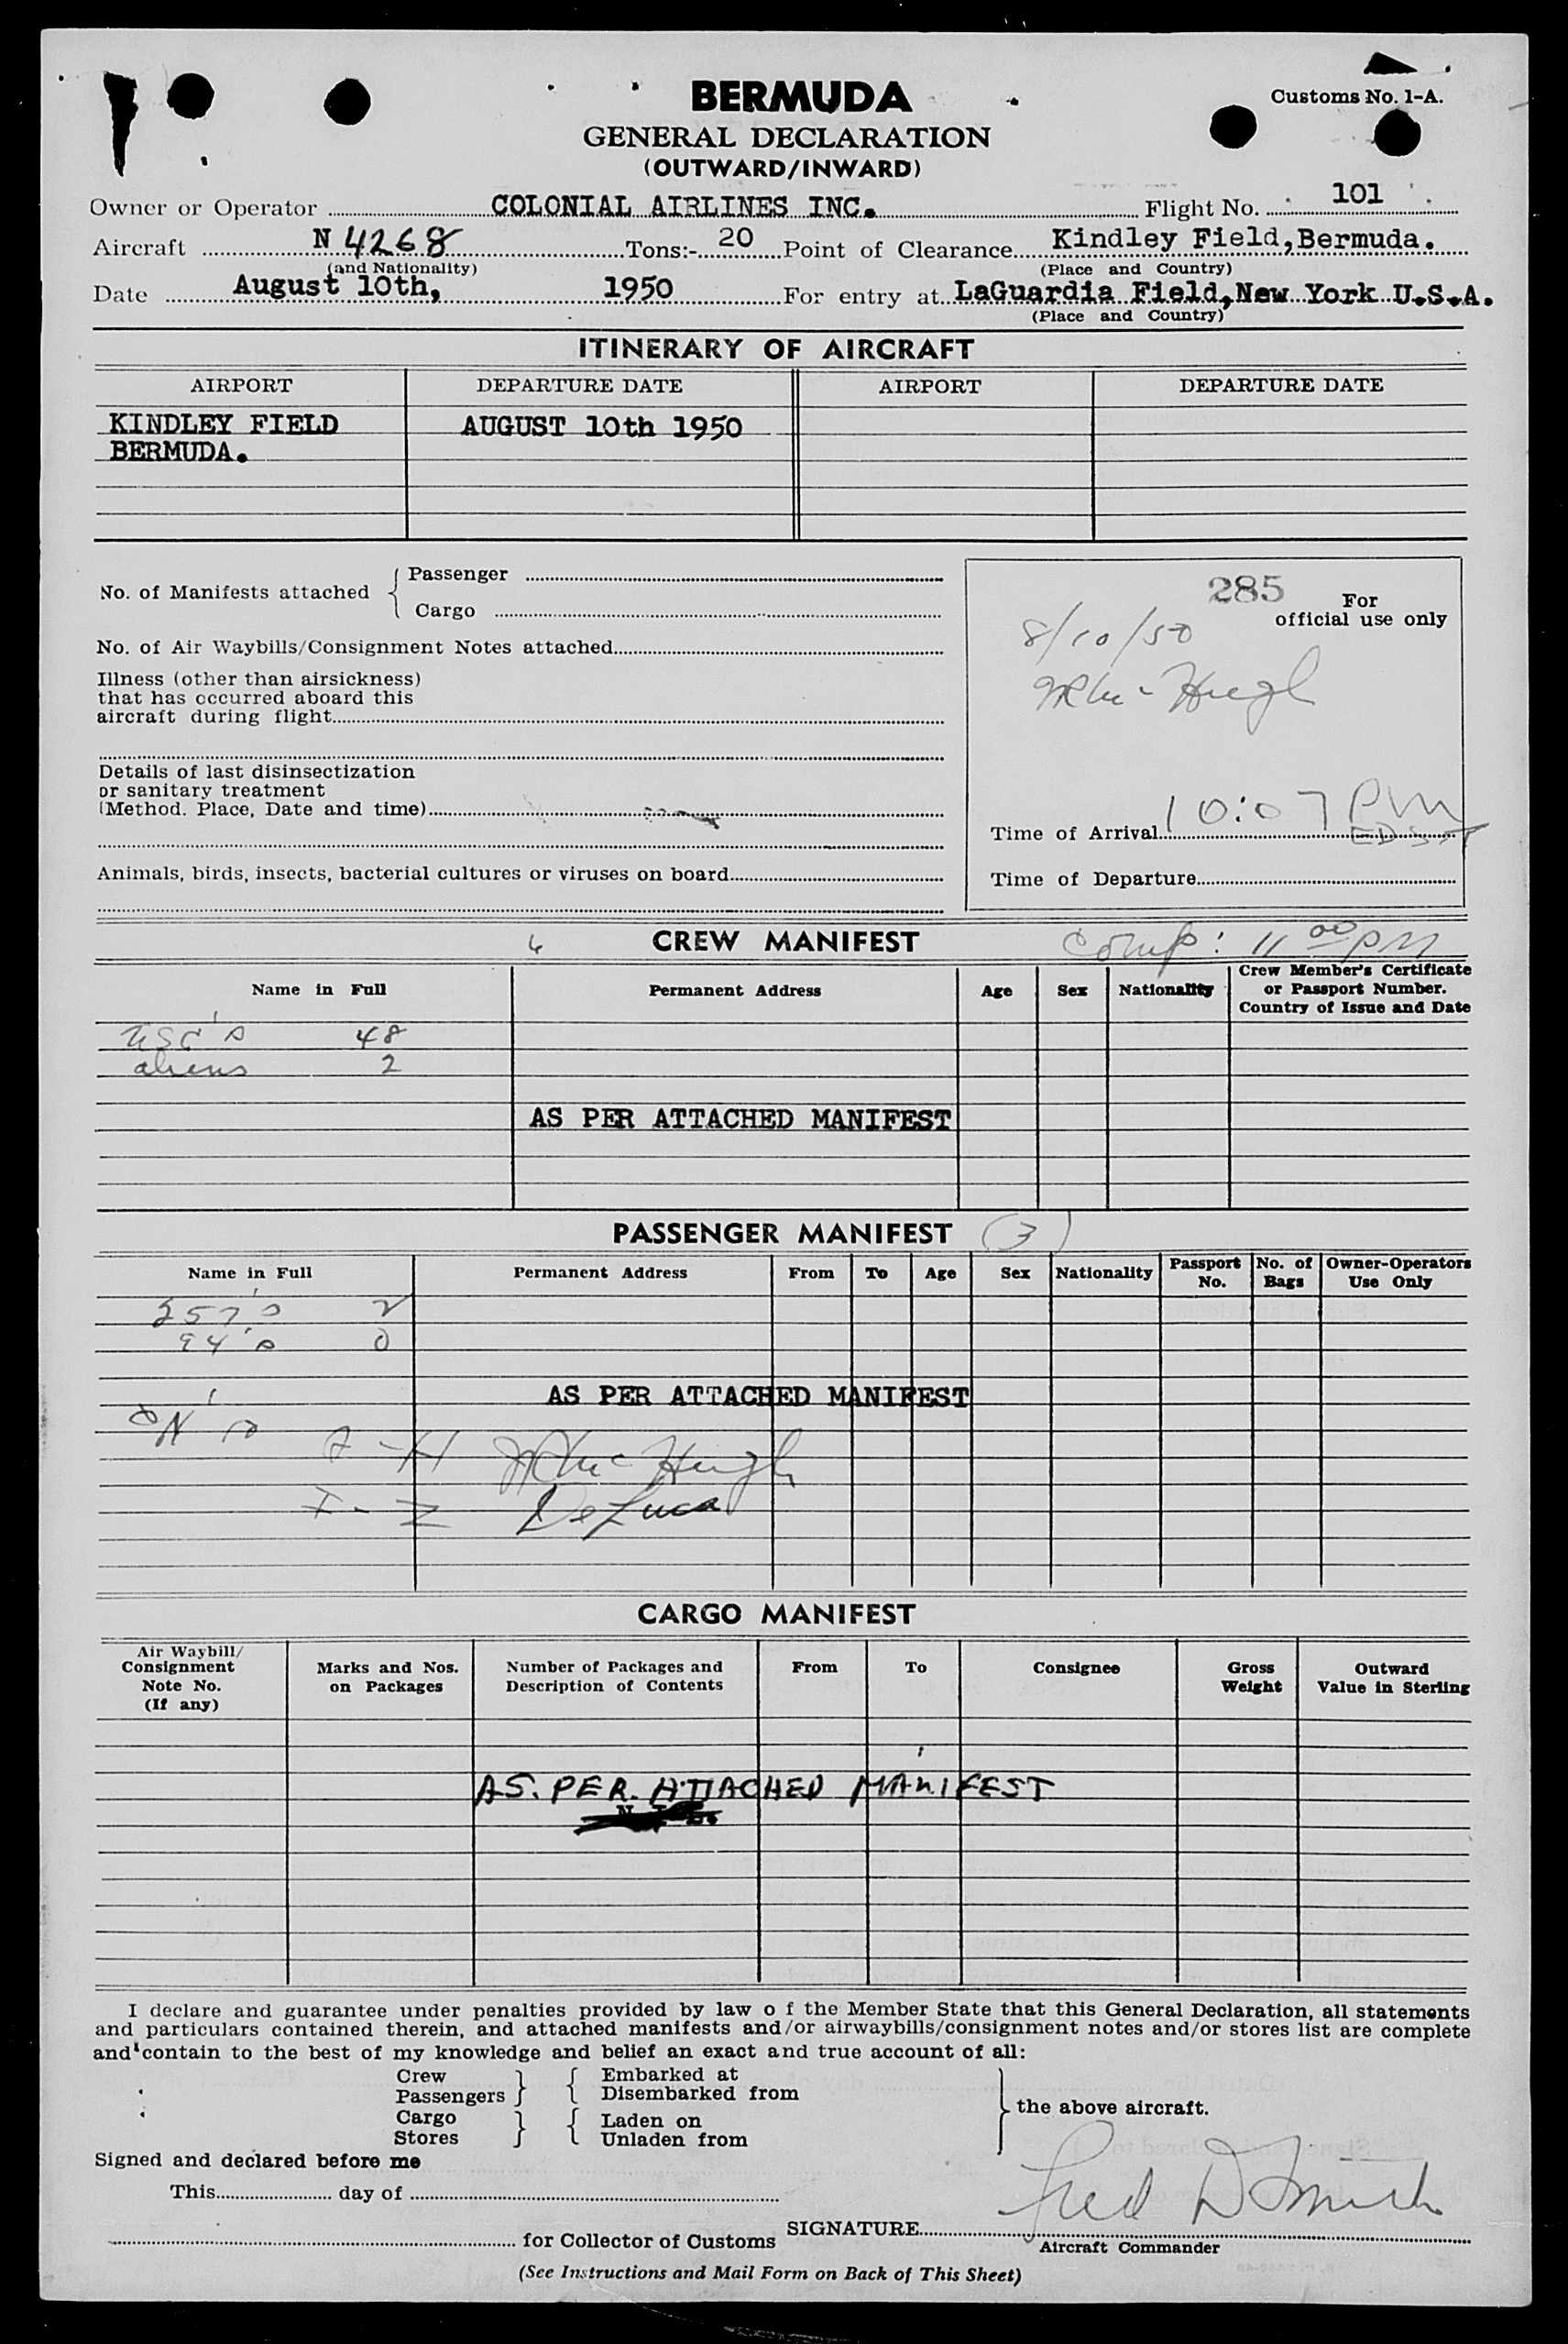 BERMUDA
Customs No. 1-A.
GENERAL DECLARATION
(OUTWARD/INWARD)
Owner or Operator COLONIAL AIRLINES INC. Flight No. 101
Aircraft N 4268 Tons:- 20 Point of Clearance Kindley Field, Bermuda.
(and Nationality) (Place and Country)
Date August 10th, 1950 For entry at LaGuardia Field, New York U.S.A.
(Place and Country)
ITINERARY OF AIRCRAFT
AIRPORT DEPARTURE DATE AIRPORT DEPARTURE DATE
KINDLEY FIELD AUGUST 10th 1950
BERMUDA.
No. of Manifests attached
Passenger
Cargo
No. of Air Waybills/Consignment Notes attached
Illness (other than airsickness)
that has occurred aboard this
aircraft during flight
Details of last disinsectization
or sanitary treatment
(Method. Place, Date and time)
Animals, birds, insects, bacterial cultures or viruses on board
285
For
official use only
8/10/50
McHugh
Time of Arrival 10:07 PM
EDST
Time of Departure
6 CREW MANIFEST Comp: 11 00 PM
Name in Full Permanent Address Age Sex Nationality Crew Member's Certificate
or Passport Number.
Country of Issue and Date
USC's 48
aliens 2
AS PER ATTACHED MANIFEST
PASSENGER MANIFEST (3)
Name in Full Permanent Address From To Age Sex Nationality Passport No. No. of Bags Owner-Operators Use Only
257's 2
94's 0
AS PER ATTACHED MANIFEST
A-H McHugh
I-Z DeLuca
CARGO MANIFEST
Air Waybill/
Consignment
Note No.
(If any)
Marks and Nos.
on Packages
Number of Packages and
Description of Contents
From
To
Consignee
Gross
Weight
Outward
Value in Sterling
AS. PER. ATTACHED MANIFEST
I declare and guarantee under penalties provided by law o f the Member State that this General Declaration, all statements
and particulars contained therein, and attached manifests and/or airwaybills/consignment notes and/or stores list are complete
and contain to the best of my knowledge and belief an exact and true account of all:
Crew Embarked at
Passengers Disembarked from
the above aircraft.
Cargo Laden on
Stores Unladen from
Signed and declared before me
This day of
Fred D Smith
SIGNATURE
for Collector of Customs
Aircraft Commander
(See Instructions and Mail Form on Back of This Sheet)